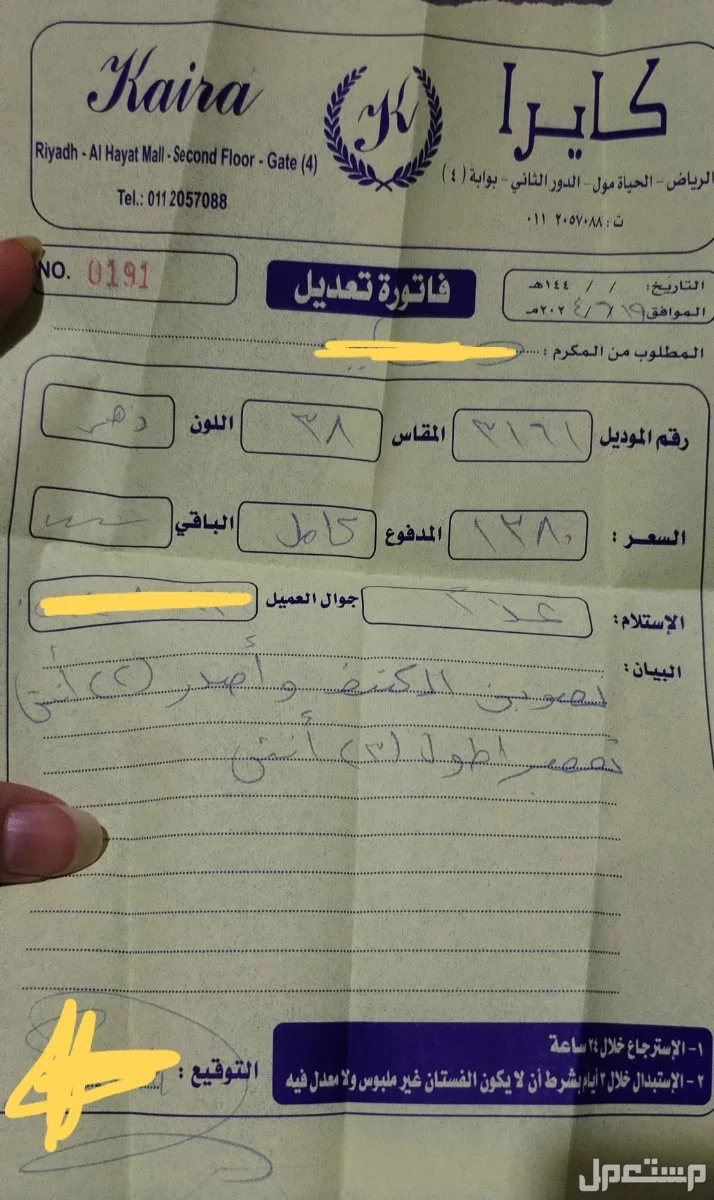 Kaira
كايرا
K
Riyadh - Al Hayat Mall - Second Floor - Gate (4)
الرياض - الحياة مول - الدور الثاني - بوابة (٤)
Tel.: 011 2057088
ت: ٢٠٥٧٠٨٨ ٠١١
NO. 0191
فاتورة تعديل
التاريخ: / / ١٤٤هـ
الموافق ١٩/٦/٢٠٢٤مـ
المطلوب من المكرم:
رقم الموديل ٣١٦١ المقاس ٣٨ اللون
السعر: ١٣٨٠ المدفوع كامل الباقي
الإستلام: جوال العميل
البيان:
الكتف وأصدر (٢) أنش
تقصير اطول (٣) أنش
١- الإسترجاع خلال ٢٤ ساعة
٢- الإستبدال خلال ٣ أيام بشرط أن لا يكون الفستان غير ملبوس ولا معدل فيه
التوقيع:
مستعمل